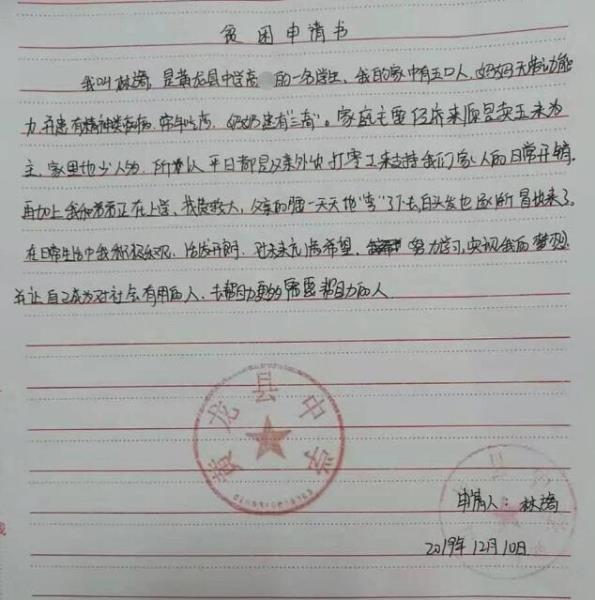 贫困申请书
我叫林海,是黄龙县中学高的一名学生,我的家中有五口人,妈妈无劳动能
力,并患有精神类疾病,常年吃药,奶奶患有“三高”。家庭主要经济来源是卖玉米为
主,家里地少人多,所以平日都是父亲外出打零工来支持我们家人的日常开销。
再加上我和弟弟正在上学,花费较大,父亲的腰一天天地“弯”了下去,白头发也逐渐冒出来了。
在日常生活中我积极乐观,活泼开朗,对未来充满希望,努力学习,实现我的梦想
并让自己成为对社会有用的人,去帮助更多需要帮助的人
黄龙县中学
申请人:林
2019年12月10日